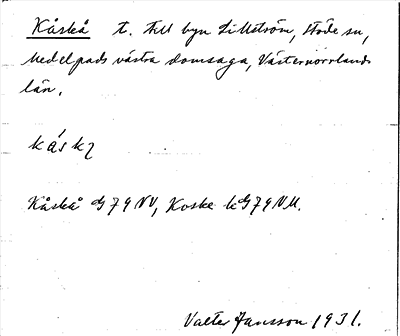 Kåskå t. till byn Lillström, Stöde sn,
Medelpads västra domsaga, Västernorrlands
län.
Kåskå G79NV, Koske k G79NV.
Valter Jansson 1931.